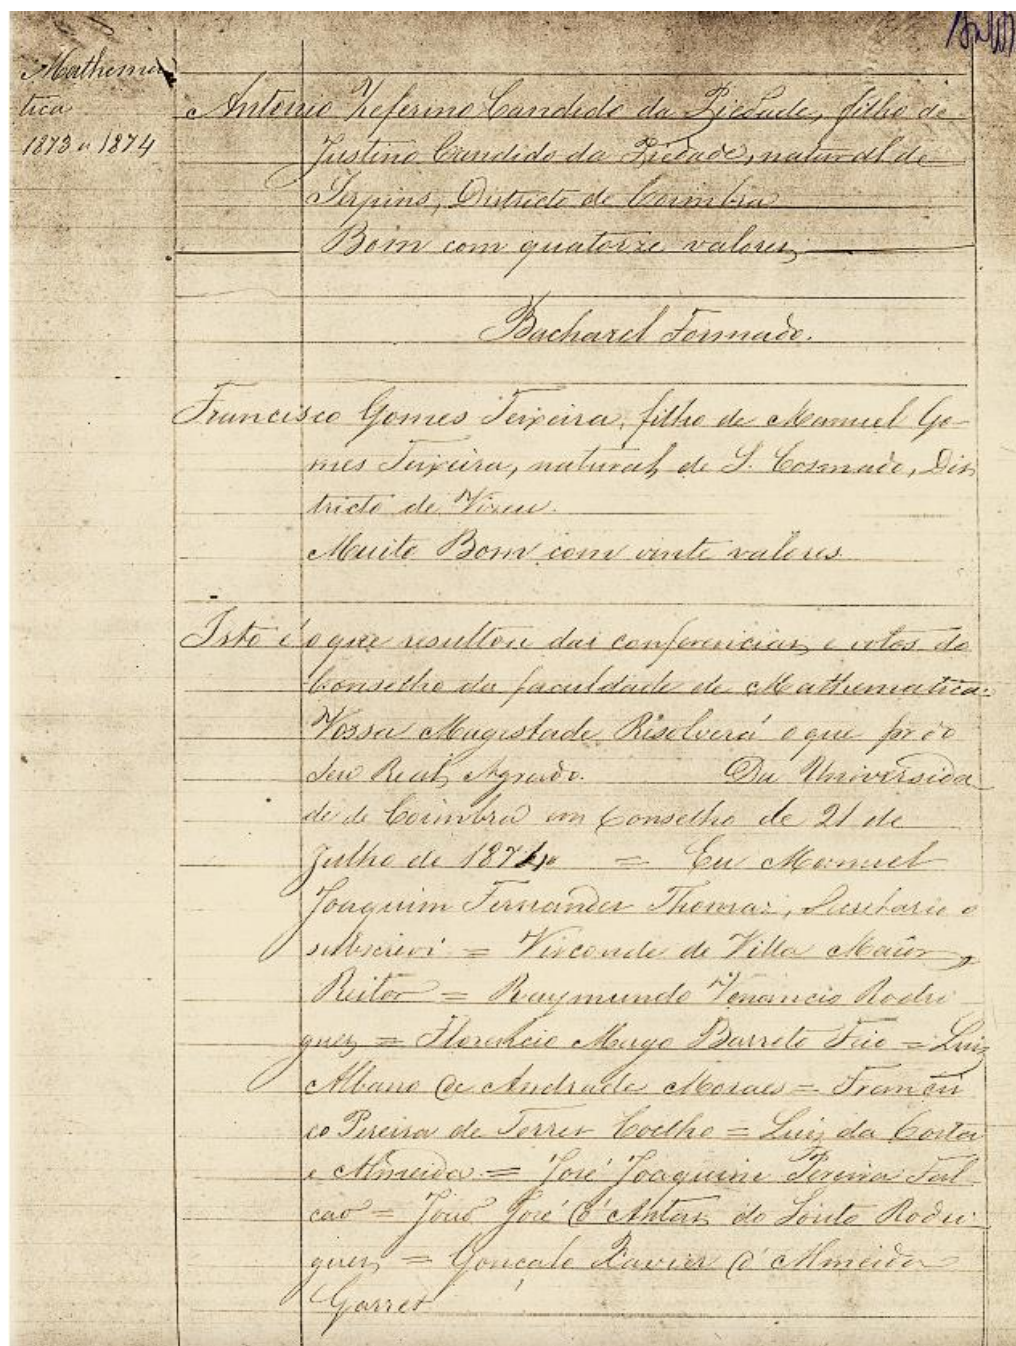 Mathema
tica
1873 a 1874
Antonio Zeferino Candido da Piedade, filho de
Justino Candido da Piedade, natural de
Serpins, Districto de Coimbra
Bom com quatorze valores
Bacharel Formado.
Francisco Gomes Teixeira, filho de Manuel Go-
mes Teixeira, natural de S. Cosmado, Dis
tricto de Vizeu.
Muito Bom com vinte valores.
Isto é o que resultou das conferencias e votos do
Conselho da faculdade de Mathematica.
Vossa Magestade Resolverá o que for do
Seu Real Agrado. Da Universida
de de Coimbra em Conselho de 21 de
Julho de 1874 = Eu Manuel
Joaquim Fernandes Thomaz, Secretario o
subscrevi = Visconde de Villa Maior,
Reitor = Raymundo Venancio Rodri
gues = Florencio Mago Barreto Feio = Luiz
Albano de Andrade Moraes = Francis
co Pereira de Torres Coelho = Luiz da Costa
e Almeida = José Joaquim Pereira Fal
cão = João José d'Antas do Souto Rodri
gues = Gonçalo Xavier d'Almeida
Garret